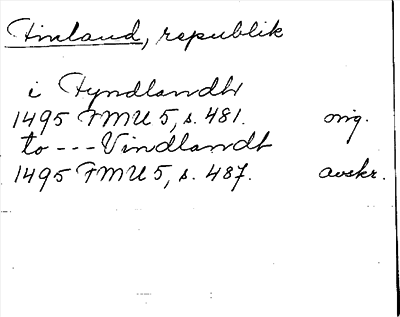 Finland, republik
i Fyndlandh
1495 FMU 5, s. 481. orig.
to --- Vindlandt
1495 FMU 5, s. 487. avskr.